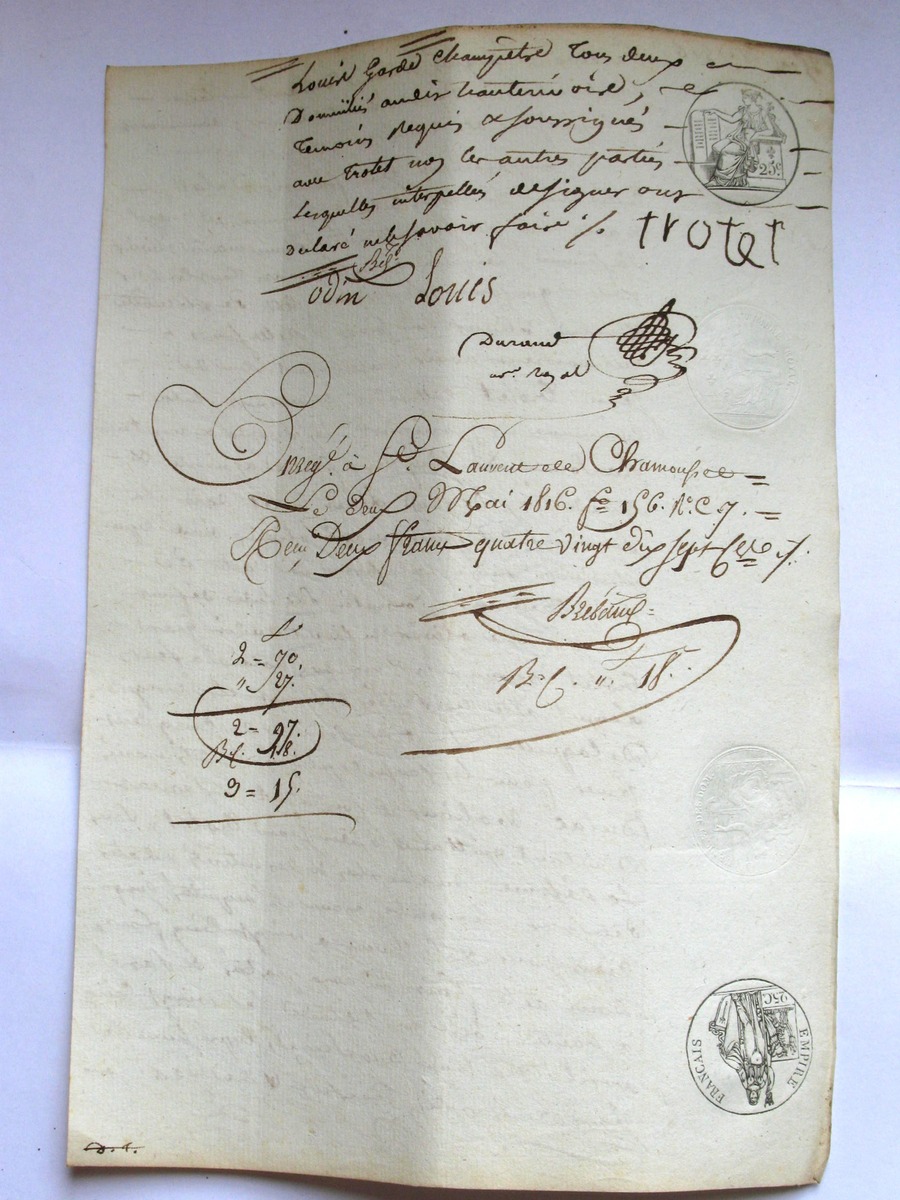 Louis Garde Champêtre tous deux
Domiciliés audit hauterivoire,
Temoins Requis & soussignés
avec trotet non les autres parties
lesquelles interpellés de signer ont
declaré ne le savoir faire /.
trotet
odin Louis
Durand
no.re Royal
Enregé. à St. Laurent de Chamousset =
Le deux Mai 1816. fo 156. Ro. C 7. =
Reçu Deux francs quatre vingt dix sept
2 = 70.
" 27.
2 = 97.
18.
3 = 15.
" 18.
25c
EMPIRE
FRANÇAIS
25C